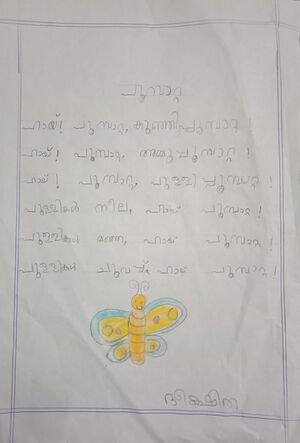 പൂമ്പാറ്റ
ഹായ്! പൂമ്പാറ്റ, കുഞ്ഞിപ്പൂമ്പാറ്റ !
ഹായ് ! പൂമ്പാറ്റ, അമ്മപ്പൂമ്പാറ്റ !
ഹായ് ! പൂമ്പാറ്റ, പുള്ളിപ്പൂമ്പാറ്റ !
പുള്ളികൾ നീല, ഹായ് പൂമ്പാറ്റ !
പുള്ളികൾ മഞ്ഞ, ഹായ് പൂമ്പാറ്റ !
പുള്ളികൾ ചുവപ്പ്, ഹായ് പൂമ്പാറ്റ !